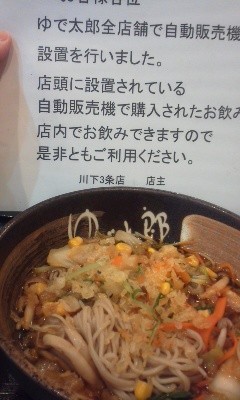 ゆで太郎全店舗で自動販売機
設置を行いました。
店頭に設置されている
自動販売機で購入されたお飲み
店内でお飲みできますので
是非ともご利用ください。
川下3条店 店主
ゆ 郎